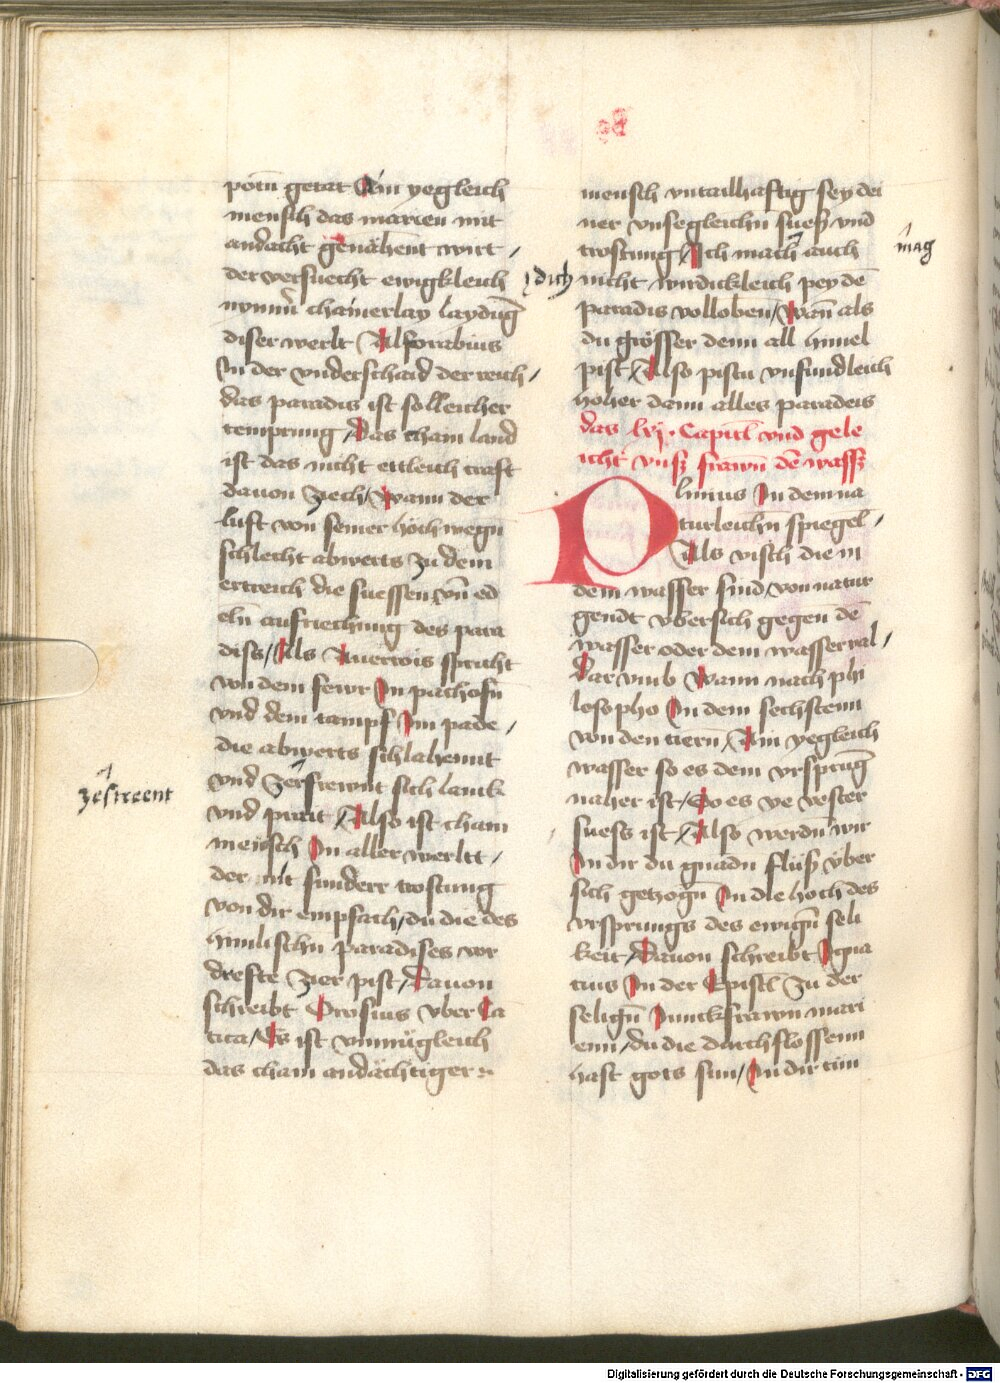 potn̄ getat Ain yegleich
mensch das marien mit
andacht genähent wirt /
der versuecht ewigkleich
nymm̄ chainerlay laydūg
diser werlt Alforabius
In der vnderschaid der reich /
das paradis ist solleicher
temprung / das cham land
ist das nicht ettleich craft
dauon ziech / Wann der
luft von seiner höch wegn
schlecht abwerts zu dem
ertreich die suessen vn̄ ed
eln̄ aufriechung des para
diss / Als Auerrois spricht
von dem fewr In pachofn
vnd dem tampf Im pade /
die abwerts schlahennt
vnd zerfrewnt sich lanck
vnd prait / Also ist cham
mensch In aller werltt /
der nit sunderr trostung
von dir empfach / du die des
himlischn paradises vor
dreste zier pist / Dauon
schreibt Orosius vber Cā
tica / Es ist vnmügleich
das cham andächtiger
zestreent
mensch vntailhaftig sey dei
ner vnsegleichn suess vnd
trostung / Ich mach auch
mag
dich
nicht wirdickleich pey dē
paradis volloben / Wan̄ als
du grösser denn all himel
pist / Also pistu vnfundleich
höher dann alles paradeis
das lvj. Capitl vnd gele
icht vnss frawn̄ dē wassz
Plinius In dem na
turleichn̄ spiegel /
Als visch die in
dem wasser sind / von natur
gendt vbersich gegen dē
wasser oder dem wasserval /
Dar vmb Wann nach phi
losopho In dem sechstenn
von den tiern̄ / Ain yegleich
wasser so es dem vrsprūg
naher ist / So es ye vester
suess ist / Also werdn̄ wir
In dir du gnadn fluss über
sich getzogn̄ In die hoch des
vrsprungs des ewign̄ seli
keit / Dauon schreibt Igna
tius In der Epistl zu der
selign̄ Junckfrawn mari
enn / du die durchflossenn
hast gots sun / In dir
Digitalisierung gefördert durch die Deutsche Forschungsgemeinschaft - DFG